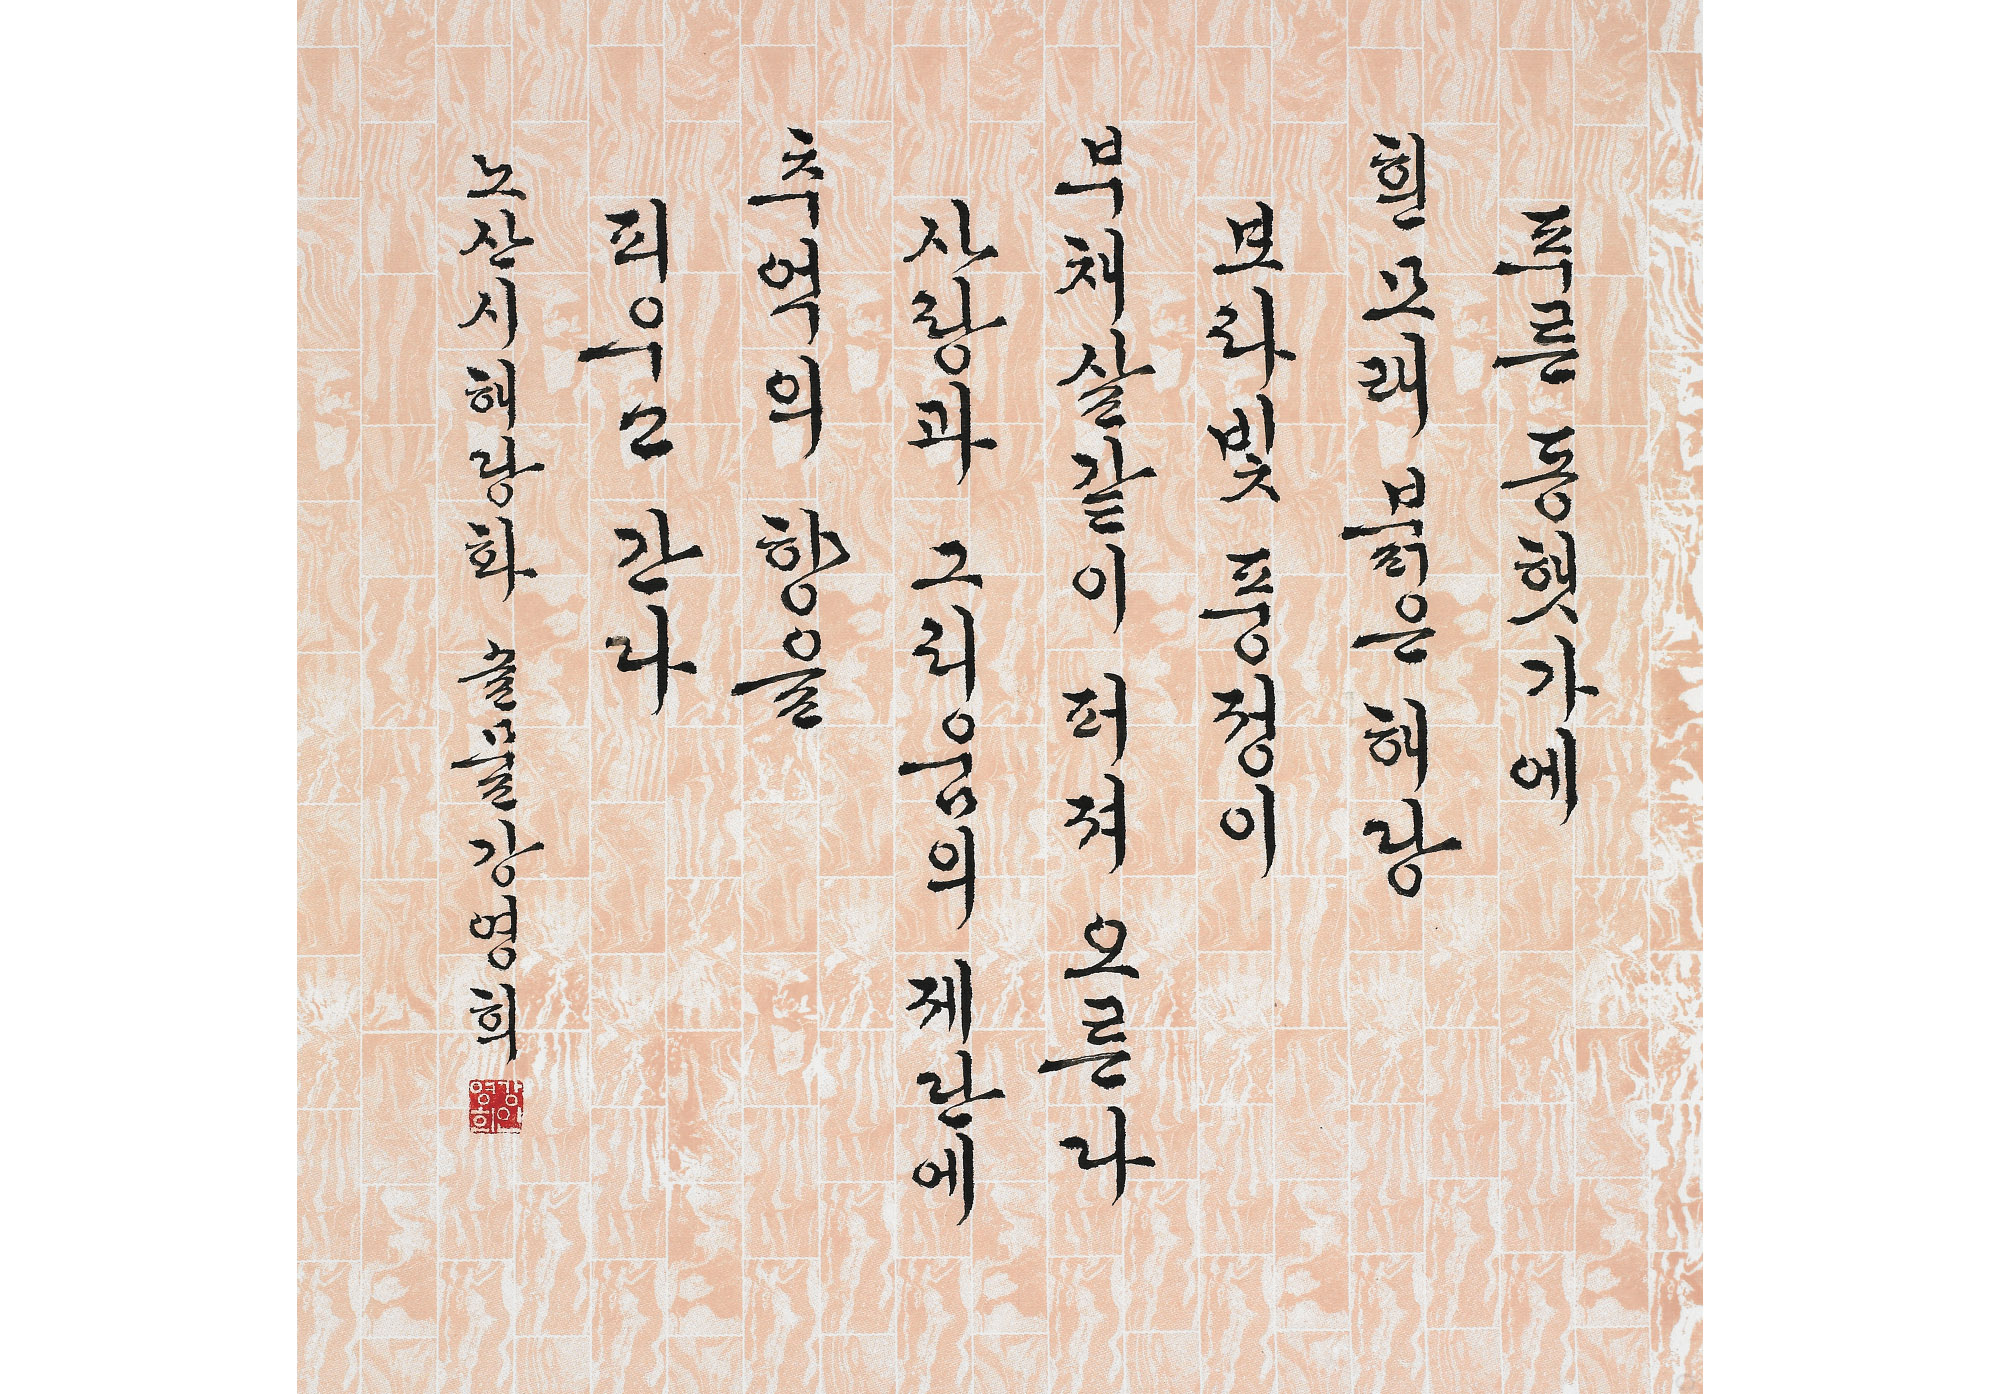 푸른 동햇가에
흰 모래 붉은 해당
보라빛 풍정이
부채살같이 퍼져 오른다
사랑과 그리움의 제단에
추억의 향을
피우고 간다
노산시해당화 강영희
강인
영희